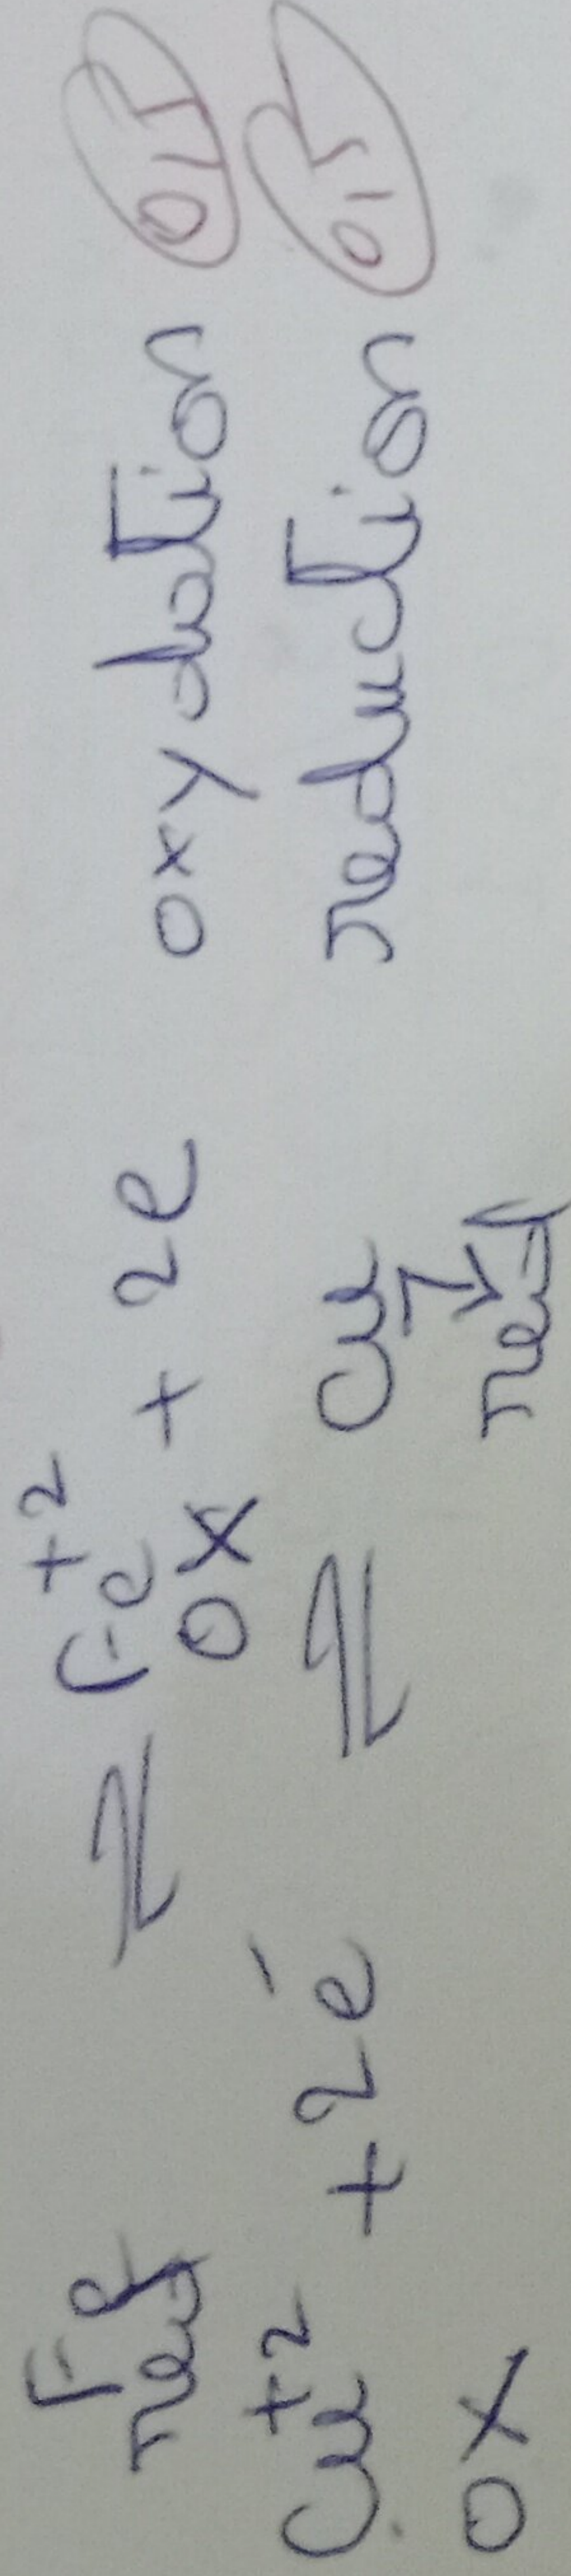 Fe ⇌ Fe+2 + 2e oxydation 0,5
red OX
Cu+2 + 2e- ⇌ Cu reduction 0,5
OX red